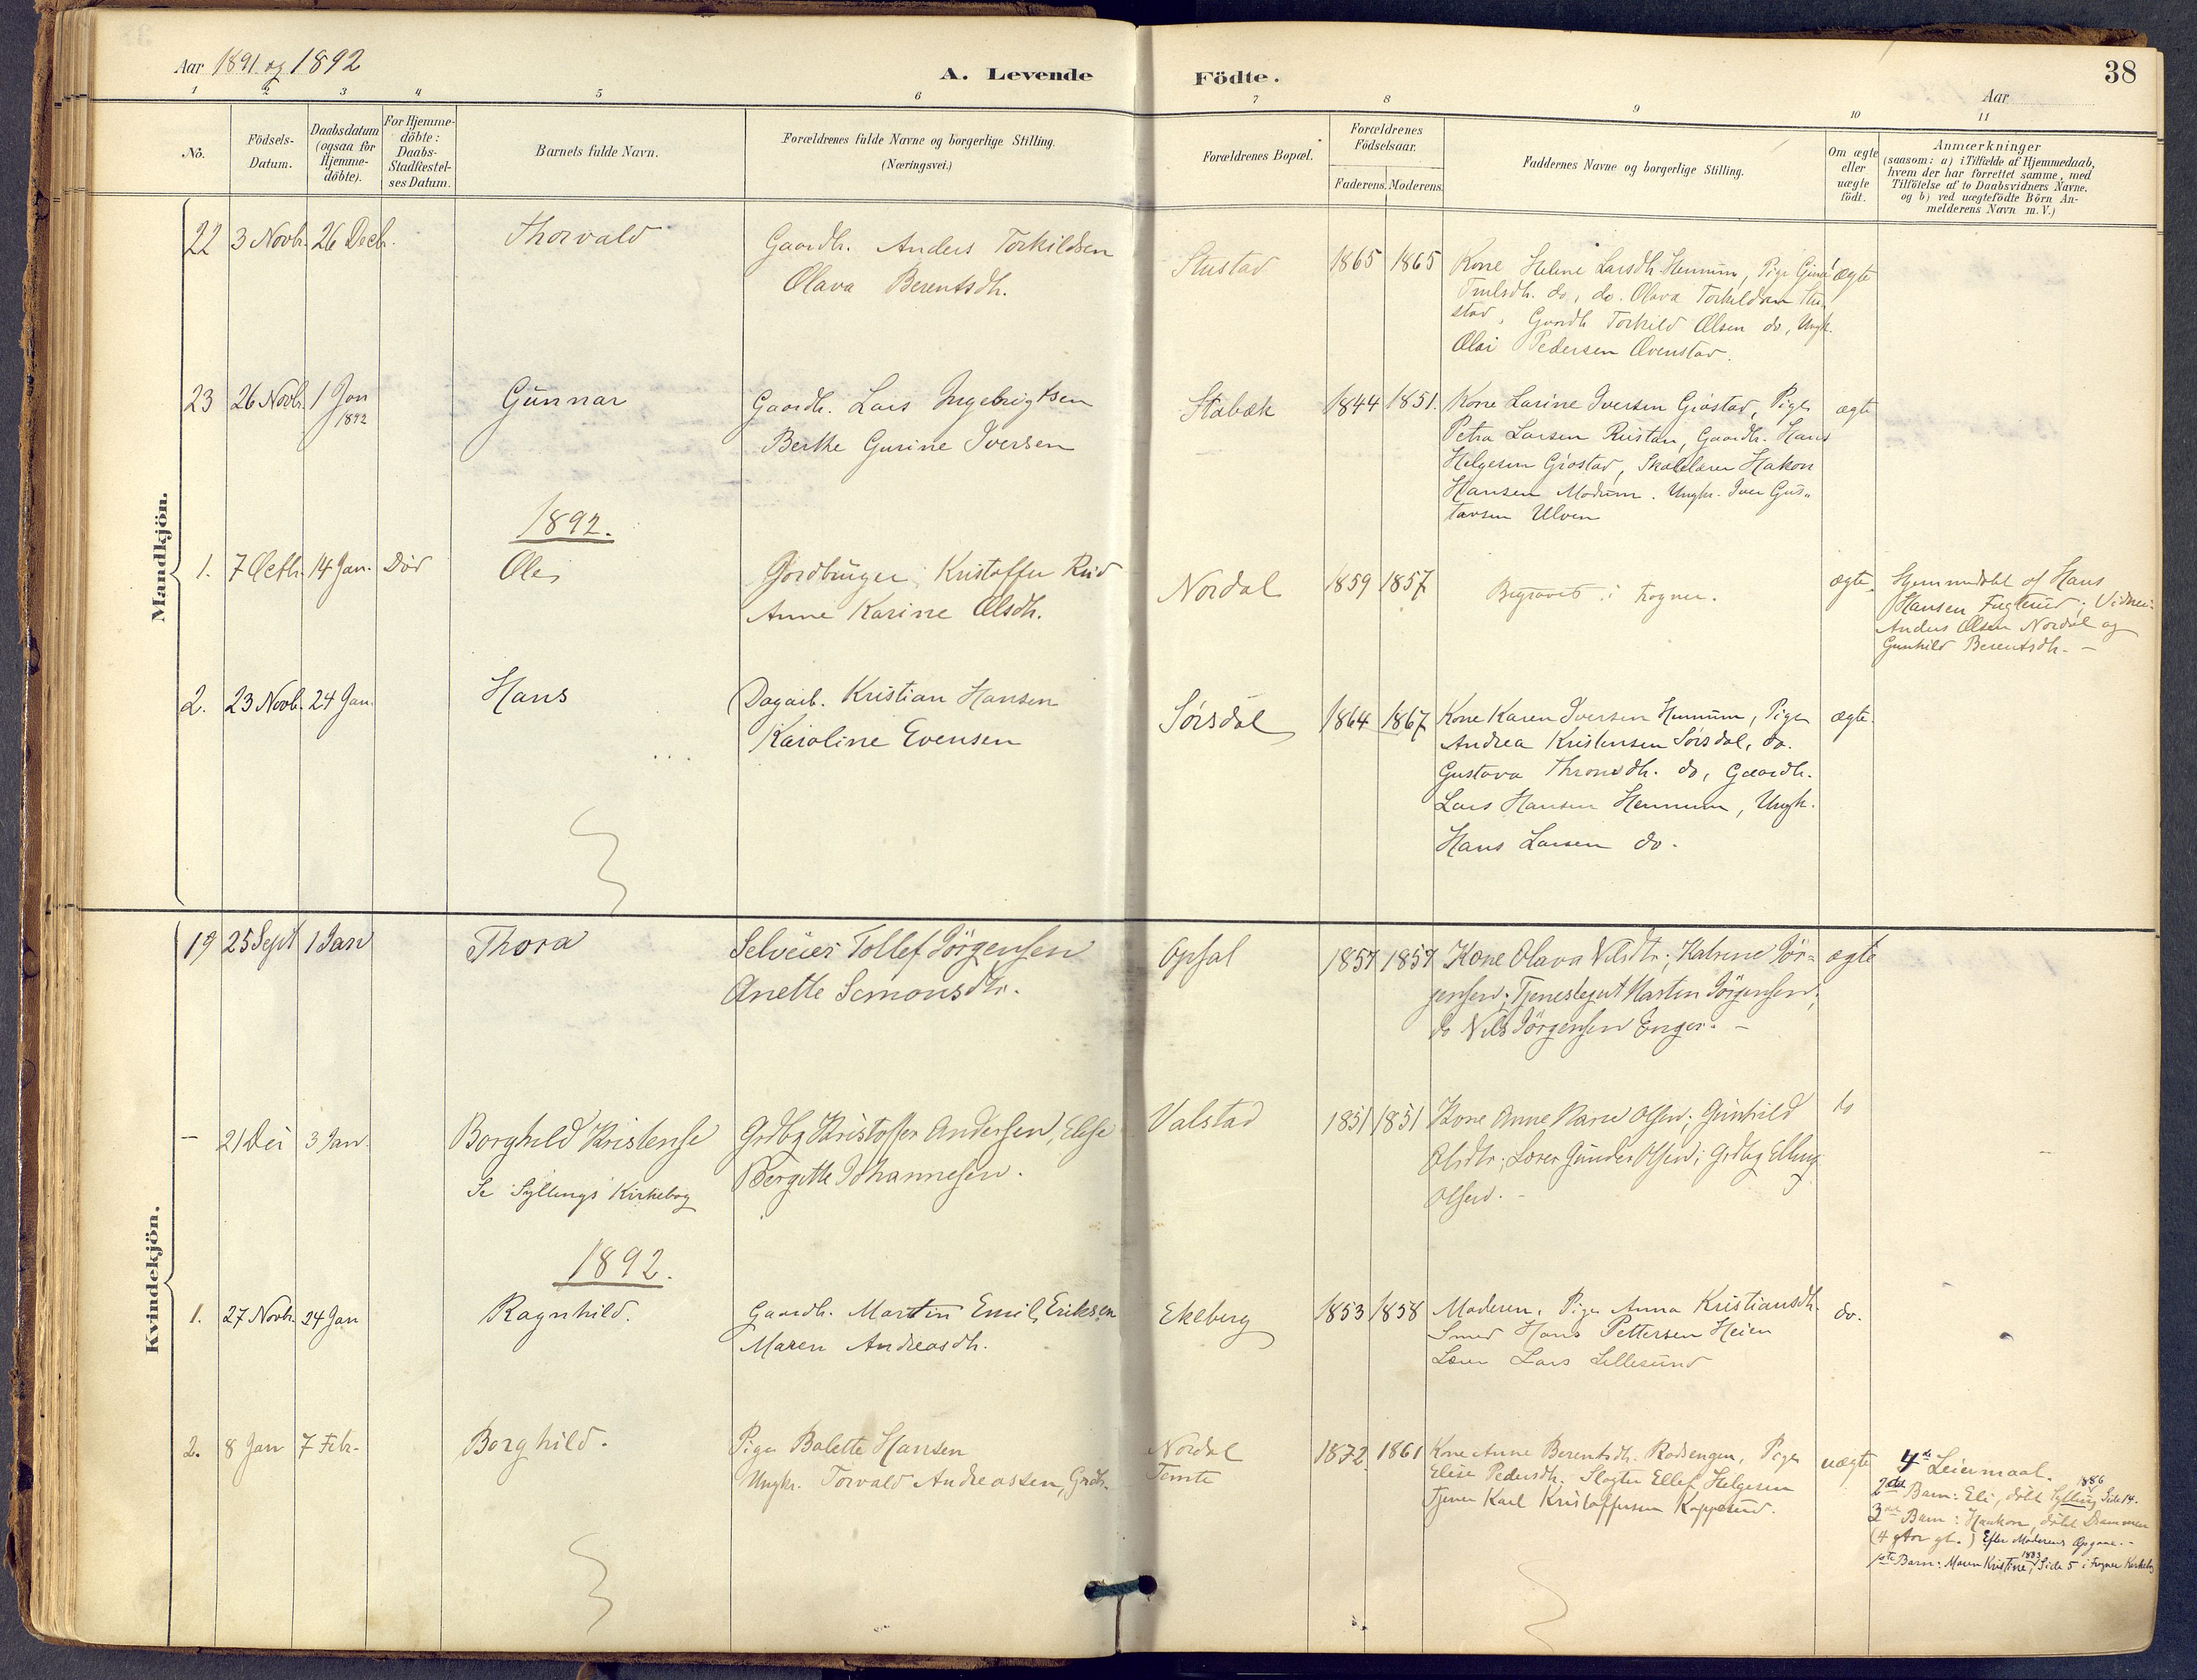 Aar 1891 og 1892
A. Levende Födte.
38
Aar
1 2 3 4 5 6 7 8 9 10 11
No.
Födsels-Datum.
Daabsdatum (ogsaa for Hjemme-döbte).
For Hjemme-döbte: Daabs-Stadfæstel-ses Datum.
Barnets fulde Navn.
Forældrenes fulde Navne og borgerlige Stilling.
(Næringsvei.)
Forældrenes Bopæl.
Forældrenes Födselsaar.
Faderens. Moderens.
Faddernes Navne og borgerlige Stilling.
Om ægte eller uægte födt.
Anmærkninger
(saasom: a) i Tilfælde af Hjemmedaab,
hvem der har forrettet samme, med
Tilföielse af to Daabsvidners Navne.
og b) ved uægtefödte Börn An-
melderens Navn m.V.)
Mandkjön.
22 3 Novb. 26 Decb. Thorvald
Gaardb. Anders Torkildsen
Olava Berentsdh.
Stustad 1865 1865
Kone Heline Larsdh. Hennum, Pige Gina
Trulsdh. do, do. Olava Torkildsen Stu-
stad, Gaardb Torkild Olsen do, Ungk.
Olai Pedersen Ovenstad.
ægte
23 26 Novb. 1 Jan 1892 Gunnar
Gaardb. Lars Ingebrigtsen
Berthe Gurine Iversen
Stabæk 1844 1851.
Kone Larine Iversen Gjøstad, Pige
Petra Larsen Rustan, Gaardb. Hans
Helgesen Gjøstad, Skolelærer Hakon
Hansen Modum. Ungkr. Iver Gus-
tavsen Ulven
ægte
1892.
1. 7 Octb. 14 Jan. Död Ole
Gordbruger Kristoffer Rud
Anne Karine Olsdh.
Nordal 1859 1857
Begravet i Frogner.
ægte
Hjemmedøbt af Hans
Hansen Fugterud; Vidner:
Anders Olsen Nordal og
Gunhild Berentsdh. —
2. 23 Novb. 24 Jan. Hans
Dagarb. Kristian Hansen
Karoline Evensen
Sørsdal 1864 1867
Kone Karen Iversen Hennum, Pige
Andrea Kristensen Sørsdal, do.
Gustava Thronsdh. do, Gaardb.
Lars Hansen Hennum, Ungk.
Hans Larsen do.
ægte
Kvindekjön.
19 25 Sept 1 Jan Thora
Selveier Tollef Jörgensen
Anette Simonsdtr.
Opsal 1857 1857
Kone Olava Nilsdtr.; Katrine Jör-
gensen; Tjenestegut Martin Jörgensen;
do Nils Jörgensen Enger. —
ægte
— 21 Dec 3 Jan. Borghild Kristense
Se Syllings Kirkebog
Grdbg Kristoffer Andersen, Elise
Bergitte Johannesen.
Valstad 1851 1851
Kone Anne Marie Olsen; Gunhild
Olsdtr.; Lærer Gunder Olsen; Grdbg Elling
Olsen. —
do
1892.
1. 27 Novb. 24 Jan Ragnhild.
Gaardb. Martin Emil Eriksen
Maren Andreasdh.
Ekeberg 1853 1858
Moderen, Pige Anna Kristiansdh.
Smed Hans Pettersen Heien
Lærer Lars Lillesund
do.
2. 8 Jan 7 Febr. Borghild.
Pige Bolette Hansen
Ungkr. Torvald Andreassen, Grdb.
Nordal
Tomte
1872. 1861
Kone Anne Berentsdh. Rødsengen, Pige
Elise Pedersdh. Slagter Ellef Helgesen
Tjener Karl Kristoffersen Koppesund.
uægte
4de Leiermaal.
2det Barn: Eli, døbt Sylling 1886 Side 14.
3de Barn: Haakon, døbt Drammen
(4 Aar gl.) Efter Moderens Opgave. -
1ste Barn: Maren Kristine, 1883 Side 5 i Frogner Kirkebog